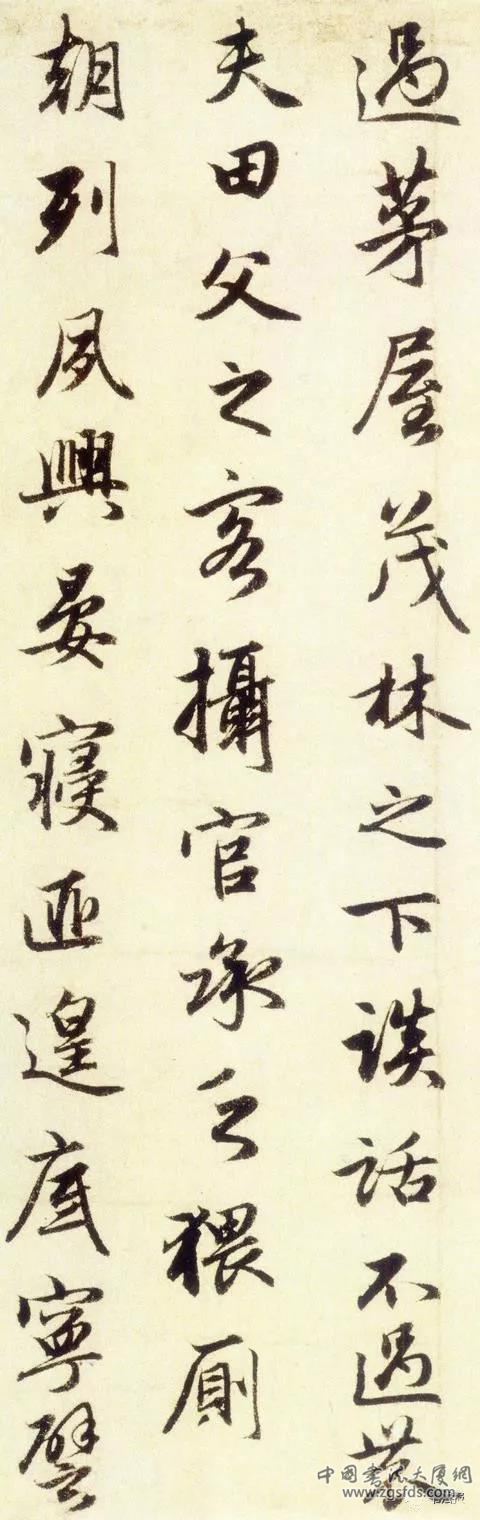 過茅屋茂林之下談話不過農
夫田父之客攝官承乏猥厠
朝列夙興晏寢匪遑底寧譬
中國書法大廈網
www.zgsfds.com